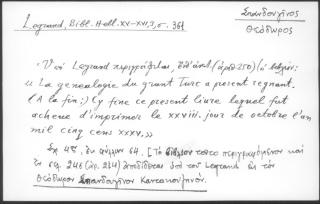 Legrand, Bibl. Hell. XV-XVI, 3, σ. 361
Σπανδουγῖνος
Θεόδωρος
Ὑπὸ Legrand περιγράφεται, (ἀριθ. 250) ὁ
« La genealogie du grant Turc a present regnant.
(A la fin:) Cy fine ce present liure lequel fut
acheue d'imprimer le xxviii. jour de octobre l'an
mil cinq cens xxxv.»
Εἰς 4ον, φύλλων 64. [Τὸ βιβλίον τοῦτο περιγραφόμενον καὶ
ἐν σελ. 246 (ἀρ. 234) ἀποδίδεται ὑπὸ τοῦ Legrand εἰς τὸν
Θεόδωρον Σπανδουγῖνον Καντακουζηνόν.